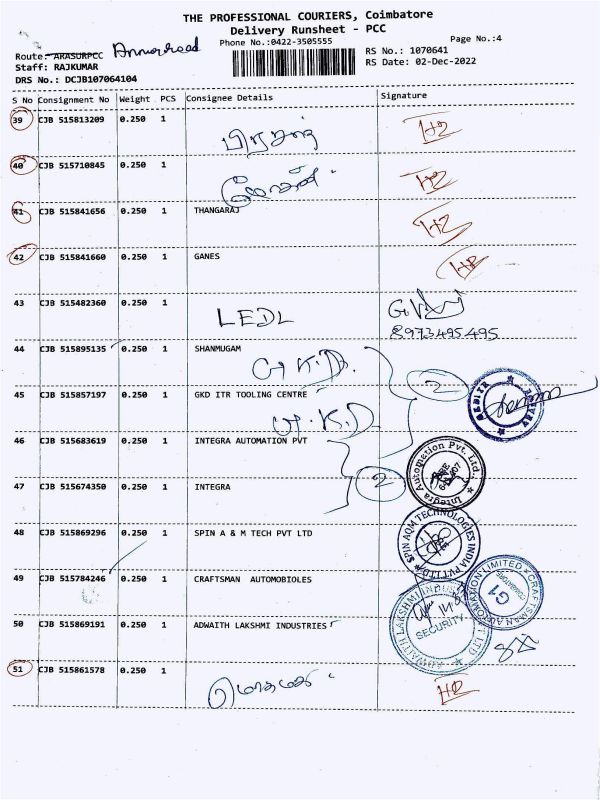 THE PROFESSIONAL COURIERS, Coimbatore
Delivery Runsheet - PCC
Phone No.:0422-3505555
Page No.:4
Route: ARASURPCC
Staff: RAJKUMAR
DRS No.: DCJB107064104
RS No.: 1070641
RS Date: 02-Dec-2022
S No Consignment No Weight PCS Consignee Details Signature
39 CJB 515813209 0.250 1
40 CJB 515710845 0.250 1
41 CJB 515841656 0.250 1 THANGARAJ
42 CJB 515841660 0.250 1 GANES
43 CJB 515482360 0.250 1 LEDL
8973495495
44 CJB 515895135 0.250 1 SHANMUGAM
G.K.D.
45 CJB 515857197 0.250 1 GKD ITR TOOLING CENTRE
G.K.D
2
46 CJB 515683619 0.250 1 INTEGRA AUTOMATION PVT
Integra Automation Pvt. Ltd.
47 CJB 515674350 0.250 1 INTEGRA
2
48 CJB 515869296 0.250 1 SPIN A & M TECH PVT LTD
SPIN AQM TECHNOLOGIES INDIA PVT LTD
49 CJB 515784246 0.250 1 CRAFTSMAN AUTOMOBIOLES
CRAFTSMAN AUTOMATION LIMITED
G1
50 CJB 515869191 0.250 1 ADWAITH LAKSHMI INDUSTRIES
ADWAITH LAKSHMI INDUSTRIES PVT LTD
SECURITY
51 CJB 515861578 0.250 1